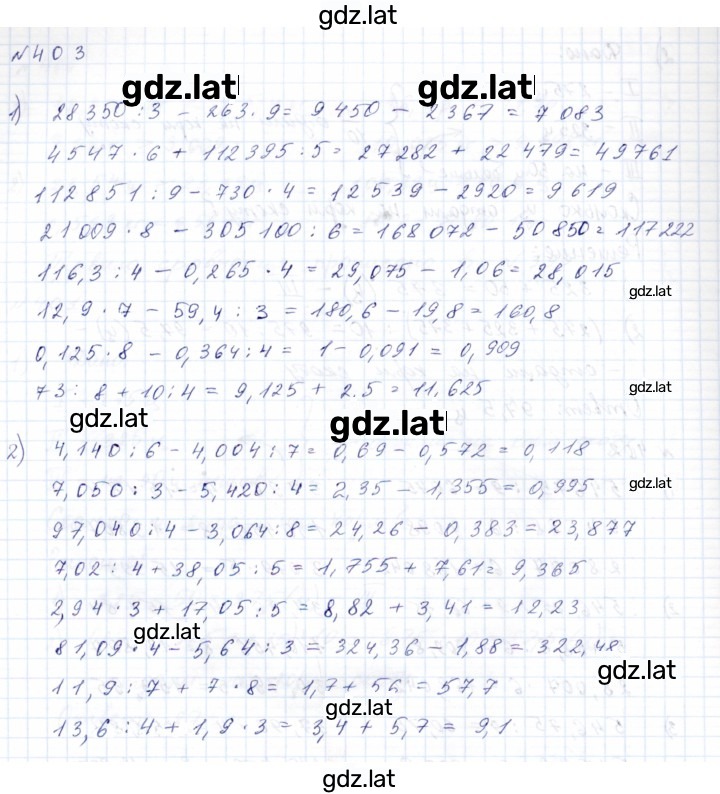 gdz.lat
№403
gdz.lat gdz.lat
1) 28350:3 - 263·9= 9450 - 2367 = 7083
4547·6 + 112395:5= 27282 + 22479= 49761
112851:9 - 730·4 = 12539 - 2920 = 9619
21009·8 - 305100:6 = 168072 - 50850= 117222
116,3:4 - 0,265·4 = 29,075 - 1,06= 28,015
gdz.lat
12,9·7 - 59,4:3 = 180,6 - 19,8 = 160,8
0,125·8 - 0,364:4 = 1 - 0,091 = 0,909
73:8 + 10:4 = 9,125 + 2.5 = 11,625
gdz.lat
gdz.lat gdz.lat
2) 4,140:6 - 4,004:7 = 0,69 - 0,572 = 0,118
7,050:3 - 5,420:4 = 2,35 - 1,355 = 0,995
gdz.lat
97,040:4 - 3,064:8 = 24,26 - 0,383 = 23,877
7,02:4 + 38,05:5 = 1,755 + 7,61= 9,365
2,94·3 + 17,05:5 = 8,82 + 3,41 = 12,23
gdz.lat
81,09·4 - 5,64:3 = 324,36 - 1,88 = 322,48
gdz.lat
11,9:7 + 7·8 = 1,7 + 56 = 57,7
gdz.lat
13,6:4 + 1,9·3 = 3,4 + 5,7 = 9,1
gdz.lat